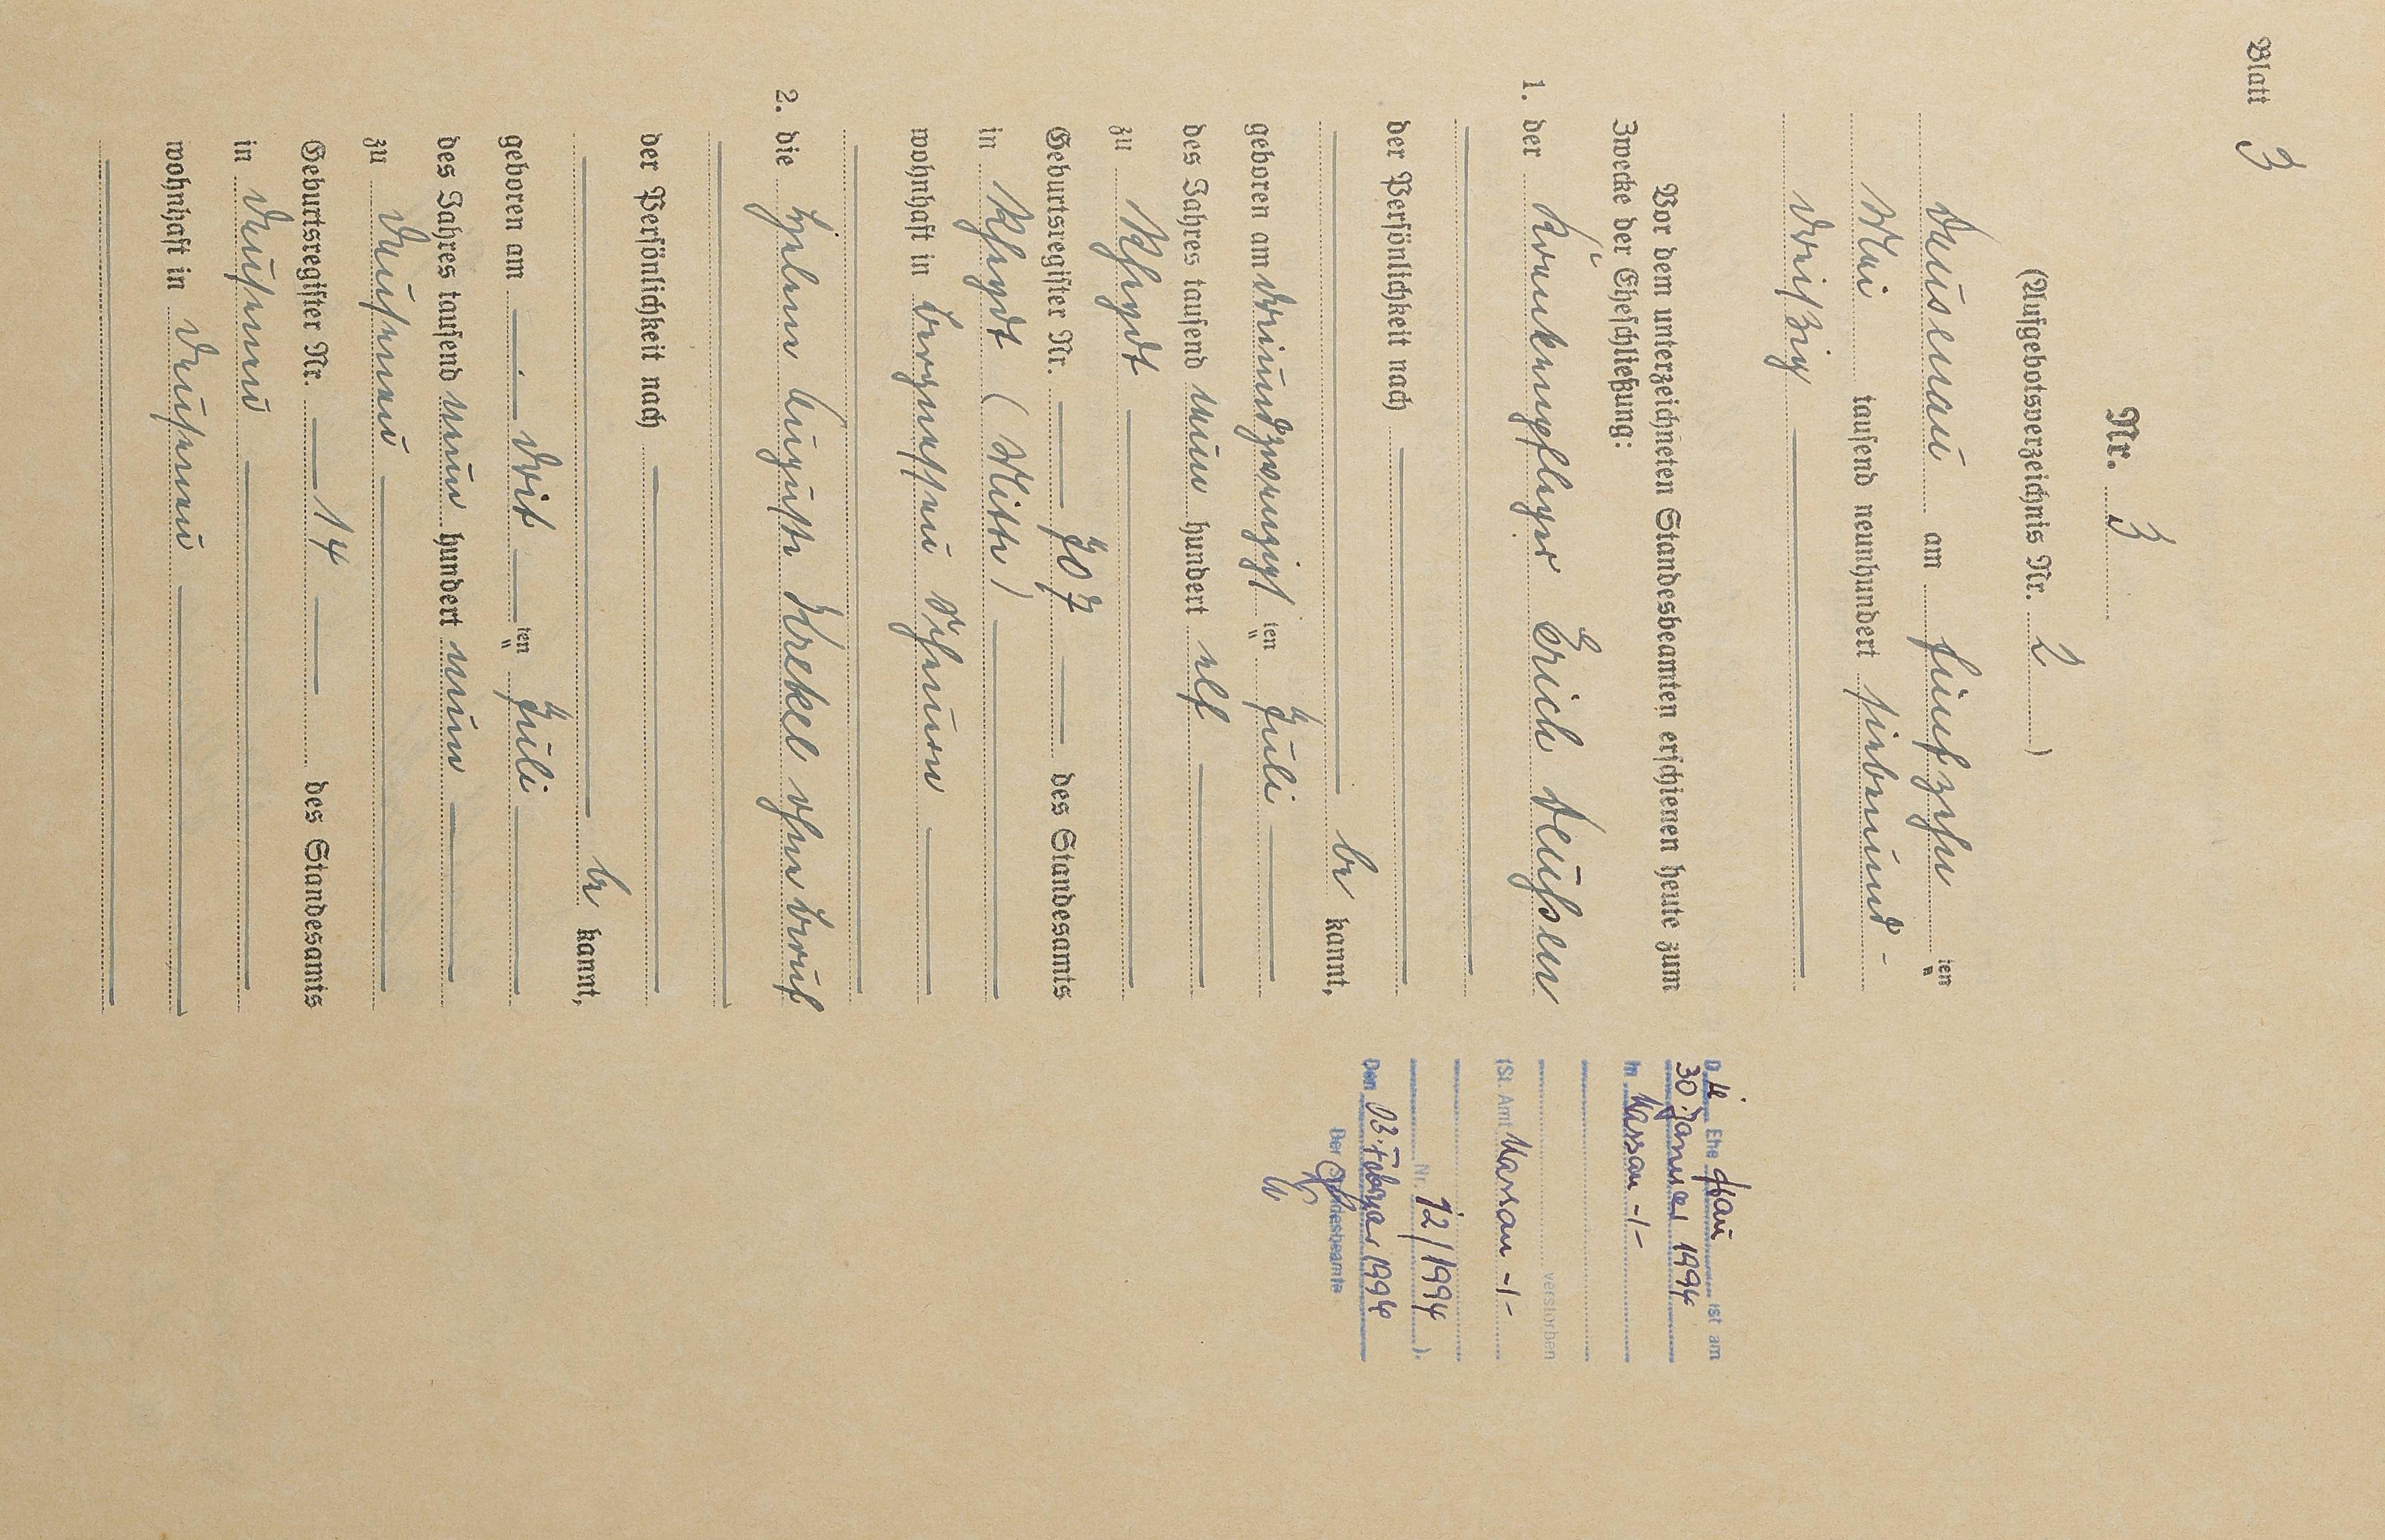 Blatt 3
Nr. 3
(Aufgebotsverzeichnis Nr. 2)
Dausenau am fünfzehn ten
Mai tausend neunhundert siebenund-
dreißig
Vor dem unterzeichneten Standesbeamten erschienen heute zum
Zwecke der Eheschließung:
1. der Krankenpfleger Erich Deußen
der Persönlichkeit nach
be kannt,
geboren am dreiundzwanzigst ten Juli
des Jahres tausend neun hundert elf
zu Rheydt
Geburtsregister Nr. 707 des Standesamts
in Rheydt (Mitte)
wohnhaft in Bergnassau Scheuern
2. die Helene Auguste Krekel ohne Beruf
der Persönlichkeit nach
be kannt,
geboren am drit ten Juli
des Jahres tausend neun hundert neun
zu Dausenau
Geburtsregister Nr. 14 des Standesamts
in Dausenau
wohnhaft in Dausenau
Die Ehefrau ist am
30. Januar 1994
in Nassau -/-
verstorben
(St. Amt Nassau -/-
Nr. 12/1994 ).
Den 03. Februar 1994
Der Standesbeamte